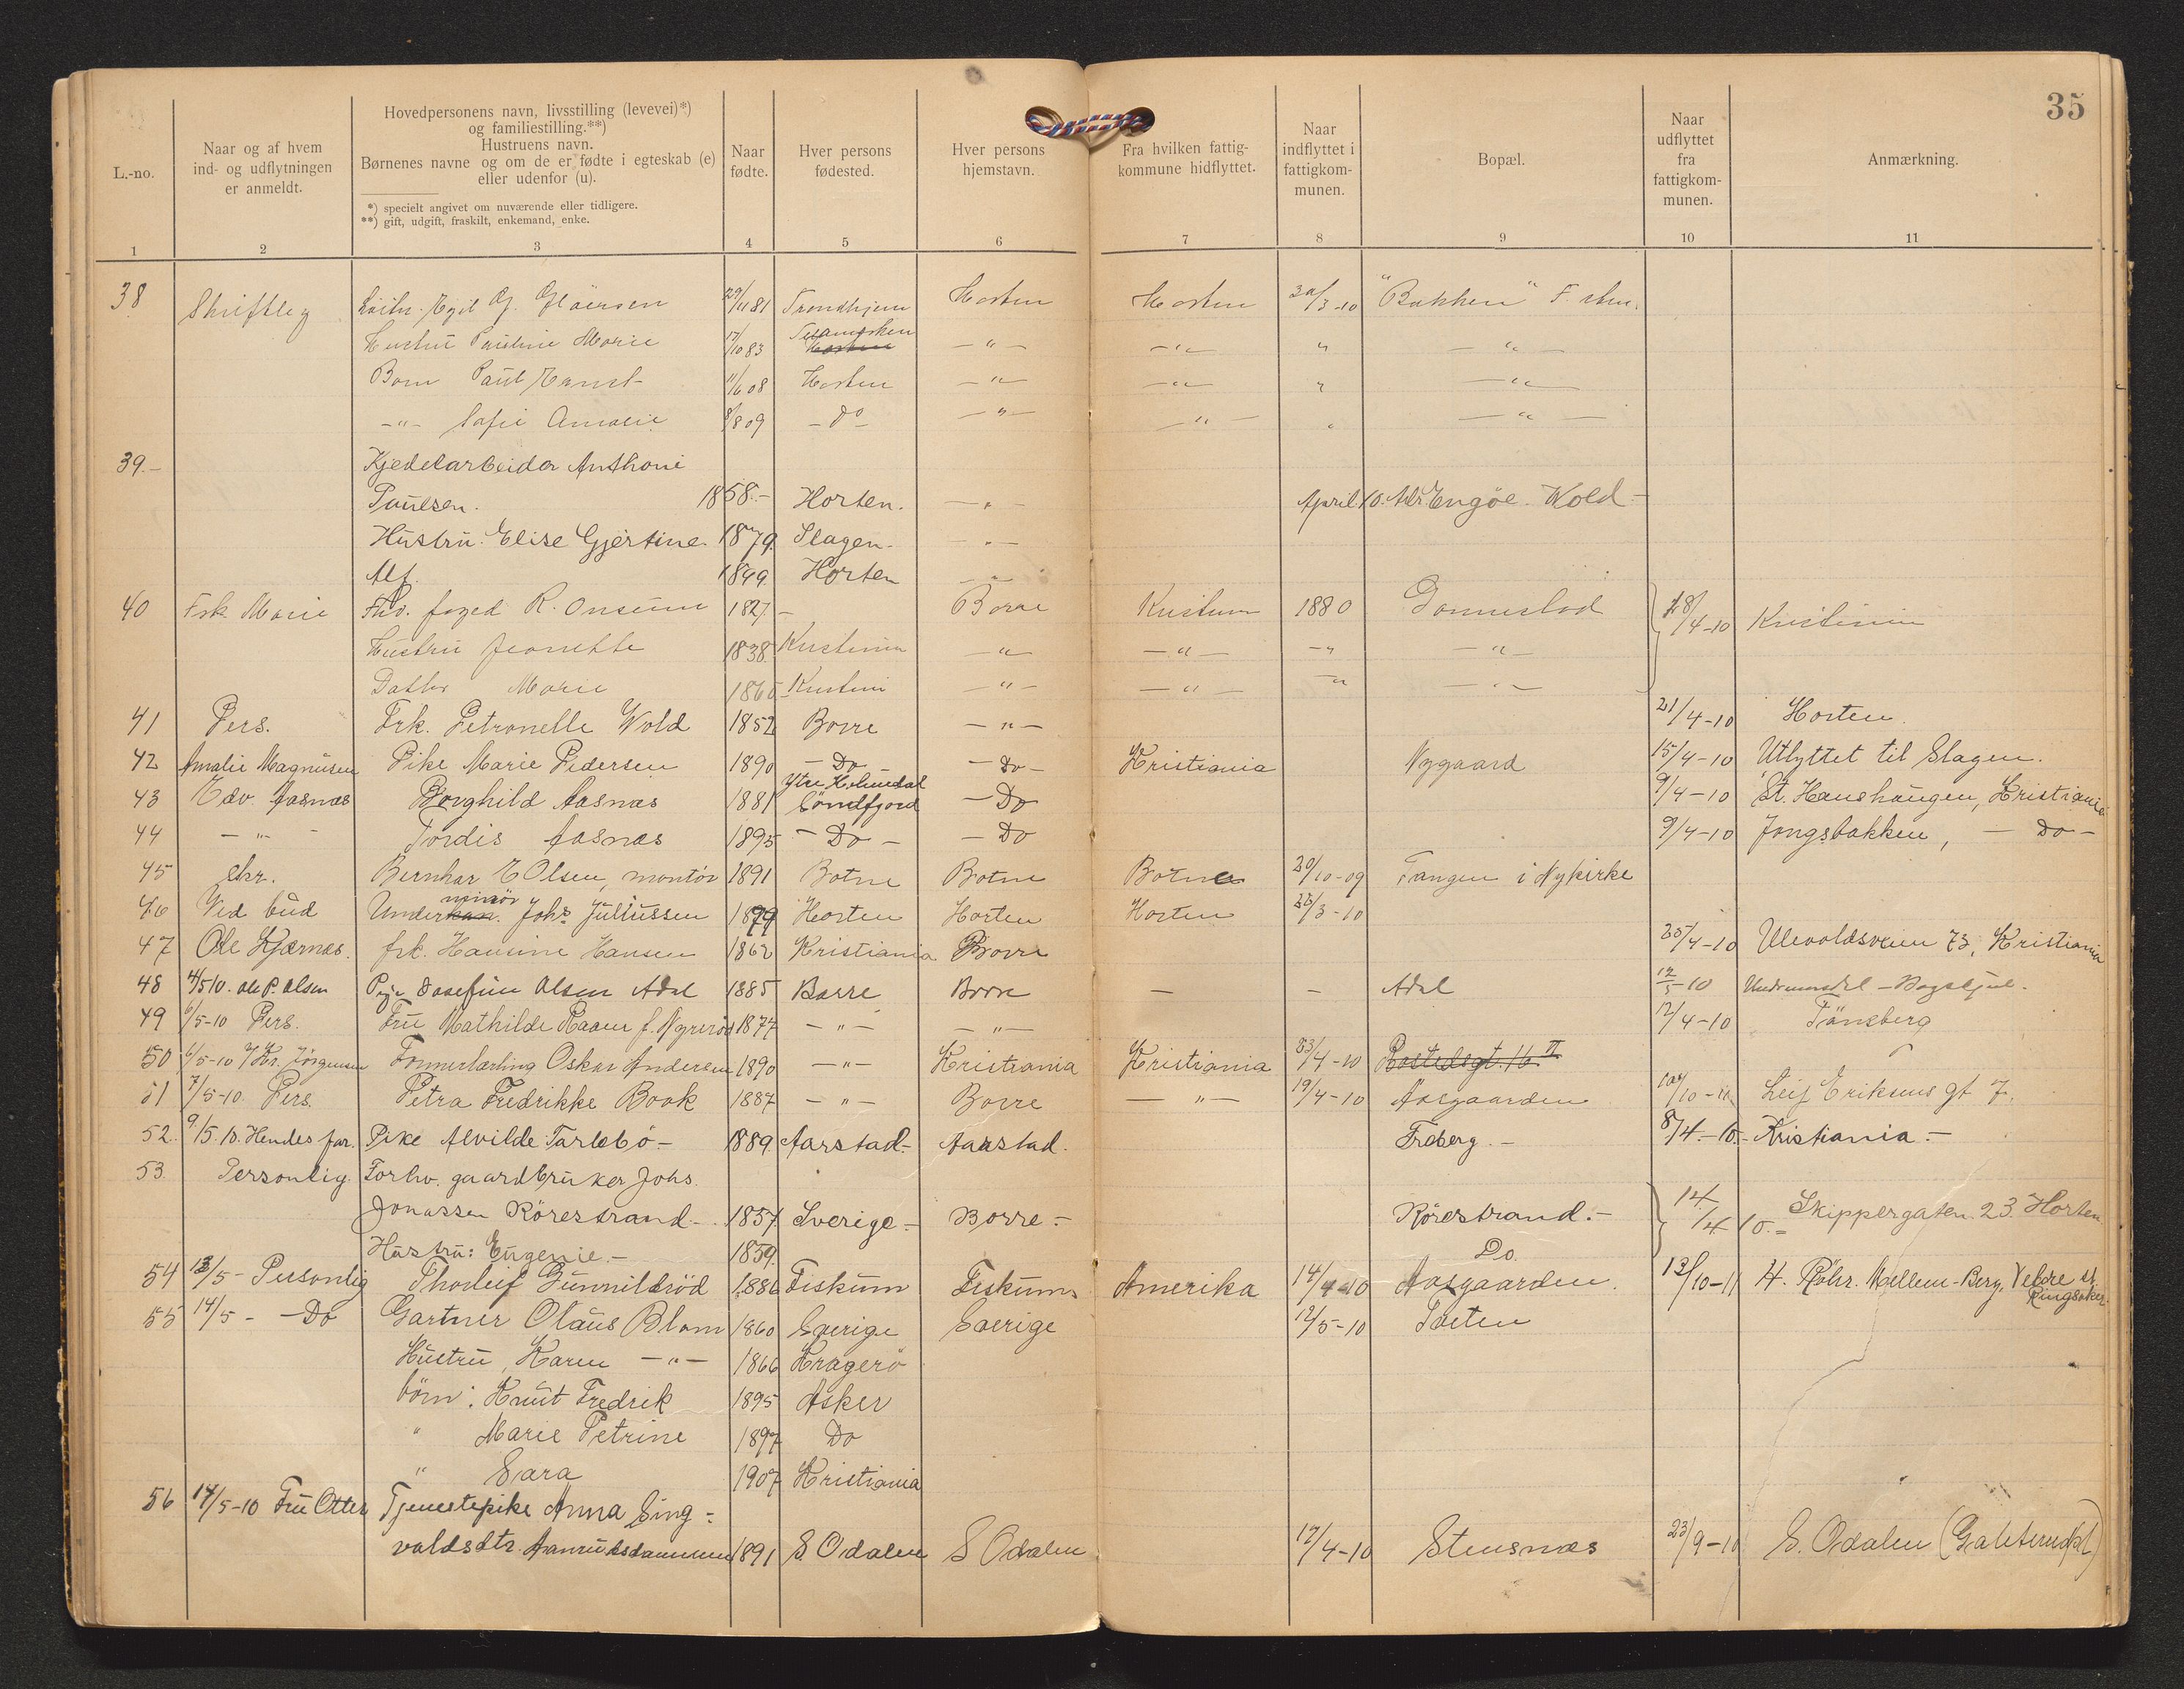 35
L.-no.
Naar og af hvem ind- og udflytningen er anmeldt.
Hovedpersonens navn, livsstilling (levevei)*) og familiestilling.**)
Hustruens navn.
Børnenes navne og om de er fødte i egteskab (e) eller udenfor (u).
*) specielt angivet om nuværende eller tidligere.
**) gift, udgift, fraskilt, enkemand, enke.
Naar fødte.
Hver persons fødested.
Hver persons hjemstavn.
Fra hvilken fattigkommune hidflyttet.
Naar indflyttet i fattigkommunen.
Bopæl.
Naar udflyttet fra fattigkommunen.
Anmærkning.
1 2 3 4 5 6 7 8 9 10 11
38 Skriftleg G. Gløersen 29/11 81 Trondhjem Horten Horten 30/3-10 "Bakken"
Hustru Pauline Marie 17/10 83 Horten -"- -"- " -"-
Barn Paul Ernst 11/6 08 Horten -"- -"- " -"-
-"- Sofie Amalie 8/8 09 -Do- -"- -"- " -"-
39.- Kjedelarbeider Anthoni
Paulsen. 1858.- Horten. -"- April 10. Engöe. Wold-
Hustru: Elise Gjertine 1879. Slagen- -"-
Alf. 1899. Horten -"-
40 Frk. Marie Fhv. foged R. Onsum 1827 - Borre Kristiania 1880 Gannestad 28/4-10 Kristiania
Hustru Jeanette 1838 Kristiania -"- -"- -"- -"-
Datter Marie 1865 Kristiania -"- -"- -"- -"-
41 Pers. Frk. Petronelle Wold 1852 Borre -"- 21/4-10 Horten.
42 Amalie Magnusen Pike Marie Pedersen 1890 -Do- -Do- Kristiania Nygaard 15/4-10 Utflyttet til Slagen.
43 Edv. Aasnæs Borghild Aasnæs 1881 Ytre Holmedal Söndfjord -Do 9/4-10 St. Hanshaugen, Kristiania
44 -"- Tordis Aasnæs 1895 -Do- -Do 9/4-10 Jongsbakken, -Do-
45 skr. Bernhar E Olsen, montör 1891 Botne Botne Botne 20/10-09 Tangen i Nykirke
46 Ved bud Underkan. minör Johs Juliussen 1879 Horten Horten Horten 22/3-10
47 Ole Kjærnæs. frk. Hansine Hansen 1862 Kristiania Borre 25/4-10 Ulevoldsveien 73, Kristiania
48 4/5 10. Ole P. Olsen Pige Josefine Olsen Adal 1885 Borre Borre - - Adal 12/5-10
49 6/5-10 Pers. Fru Mathilde Raaum f. Nyreröd 1877 -"- -"- 12/4-10 Tönsberg
50 6/5-10 Kr. Jörgensen Formerlærling Oskar Andersen 1890 -"- Kristiania Kristiania 23/4-10 Rostedsgt. 16 II
51 7/5-10 Pers. Petra Fredrikke Book 1887 -"- Borre -"- 19/4-10 Aasgaarden Leif Eriksens gt 7.
52. 9/5. 10. Hendes far. Pike Alvilde Tarlebö- 1889. Aarstad- Aarstad. Froberg.- 8/4.-10.- Kristiania.-
53 Personlig. Forhv. gaardbruker Johs.
Jonassen Rörestrand- 1857 Sverige- Borre.- Rörestrand.- 14/4 10.- Skippergaten. 23. Horten
Hustru: Eugenie.- 1859. Do.
54 13/5- Personlig Thorleif Gunnildröd 1886 Fiskum Fiskum Amerika 14/4-10 Aasgaarden. 13/10-11 H. Röhr. Mellem-Berg, Veldre st. Ringsaker.
55 14/5- -Do Gartner Olaus Blom 1860 Sverige Sverige 12/5-10 Tveten
Hustru, Karen -"- 1866 Kragerö
börn: Knut Fredrik 1895 Asker
" Marie Petrine 1897 Do
" Sara 1907 Kristiania
56 14/5-10 Fru Otter Tjenestepike Anna Sing-
valdsdtr. 1891 S. Odalen S Odalen 17/4-10 Stensnæs 23/9-10 S. Odalen